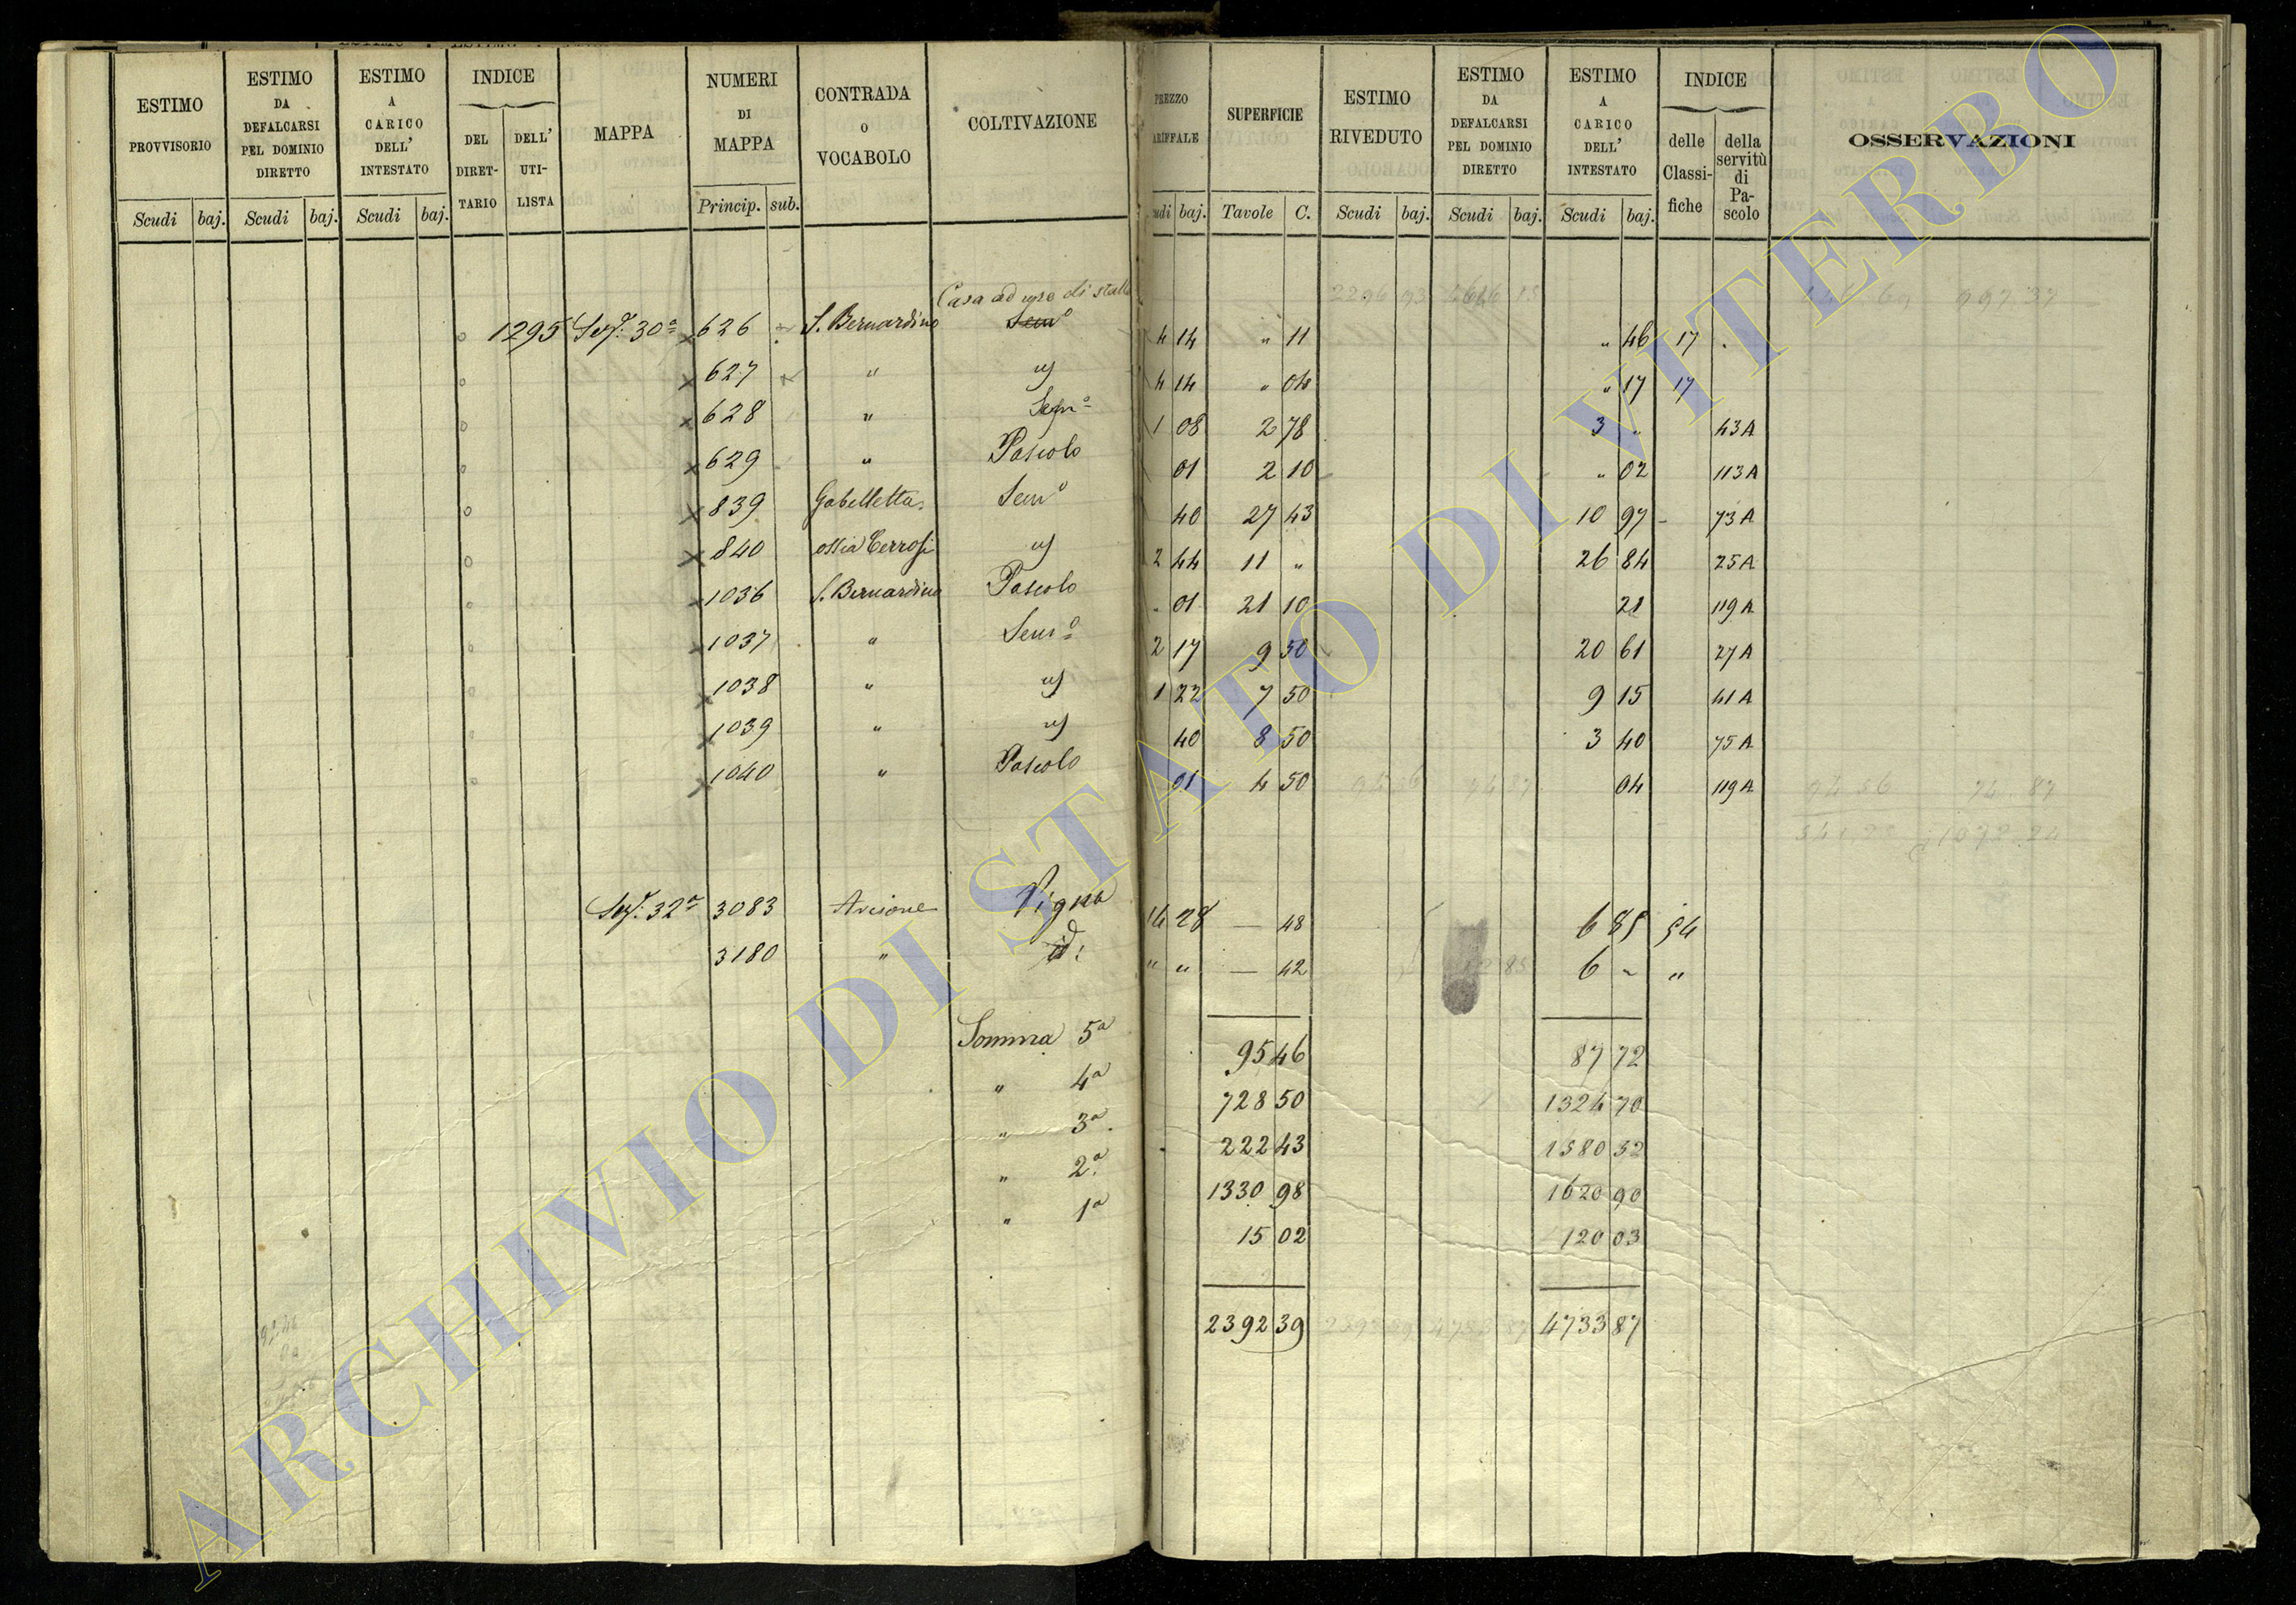 ESTIMO PROVVISORIO
ESTIMO DA DEFALCARSI PEL DOMINIO DIRETTO
ESTIMO A CARICO DELL' INTESTATO
INDICE
DEL DIRET-TARIO
DELL' UTI-LISTA
MAPPA
NUMERI DI MAPPA
CONTRADA O VOCABOLO
COLTIVAZIONE
PREZZO ARIFFALE
SUPERFICIE
ESTIMO RIVEDUTO
ESTIMO DA DEFALCARSI PEL DOMINIO DIRETTO
ESTIMO A CARICO DELL' INTESTATO
INDICE
delle Classi-fiche
della servitù di Pa-scolo
OSSERVAZIONI
Scudi baj. Scudi baj. Scudi baj. Princip. sub. udi baj. Tavole C. Scudi baj. Scudi baj. Scudi baj.
Casa ad uso di stalla
1295 Sez. 30ª 626 S. Bernardino Semº 4 14 " 11 " 46 17
627 " 4 14 " 04 " 17 17
628 " Semº 1 08 2 78 3 " 43A
629 " Pascolo 01 2 10 " 02 113A
839 Gabelletta Semº 40 27 43 10 97 73A
840 ossia Cerrosi 2 44 11 " 26 84 25A
1036 S. Bernardino Pascolo " 01 21 10 21 119A
1037 " Semº 2 17 9 50 20 61 27A
1038 " 1 22 7 50 9 15 41A
1039 " 40 8 50 3 40 75A
1040 " Pascolo 01 4 50 04 119A
Sez. 32ª 3083 Arcione Vigna 14 28 — 48 6 85 54
3180 " id: " " — 42 6 " "
Somma 5ª 95 46 87 72
" 4ª 728 50 1324 70
" 3ª 222 43 1580 52
" 2ª 1330 98 1620 90
" 1ª 15 02 120 03
2392 39 4733 87
ARCHIVIO DI STATO DI VITERBO